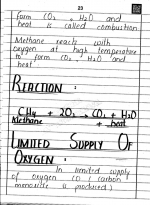 23
form CO₂, H₂O and
heat is called combustion
Methane reacts with
oxygen at high temperature
to form CO₂, H₂O and
heat
REACTION :
CH₄ + 2O₂ → CO₂ + H₂O
Methane + heat
LIMITED SUPPLY OF
OXYGEN :
In limited supply
of oxygen CO (carbon
monoxide is produced)